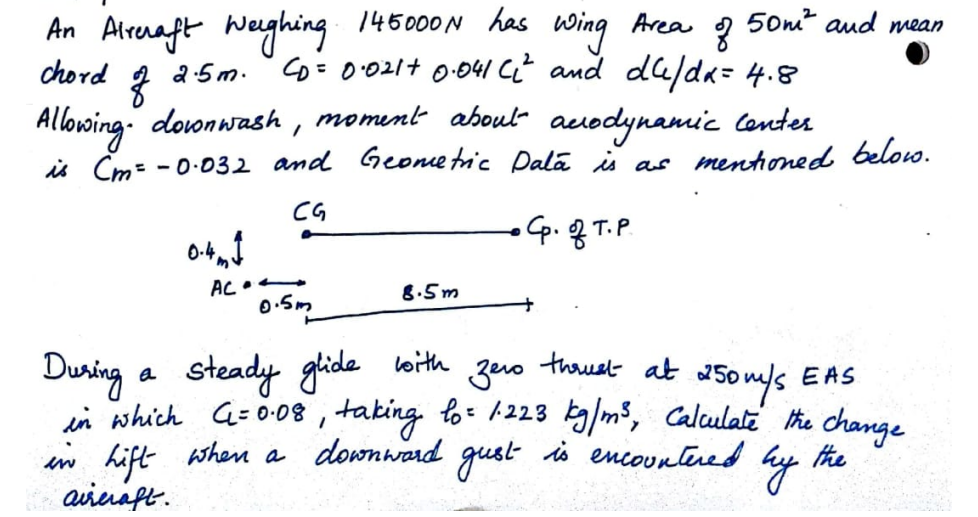 An Aircraft Weighing 145000N has wing Area of 50m² and mean
chord of 2.5m. CD = 0.021+ 0.041 CL² and dCL/dα = 4.8
Allowing downwash, moment about aerodynamic center
is Cm = -0.032 and Geometric Data is as mentioned below.
CG
Cp. of T.P.
0.4m
AC
0.5m
8.5m
During a steady glide with zero thrust at 250m/s EAS
in which CL = 0.08, taking ρ0 = 1.223 kg/m³, Calculate the change
in Lift when a downward gust is encountered by the
aircraft.